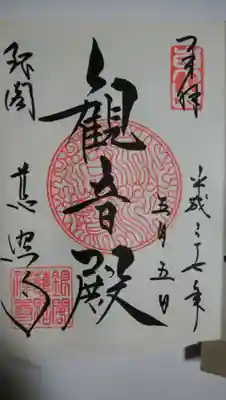 奉拝
平成二十七年
五月五日
観音殿
銀閣
慈照寺